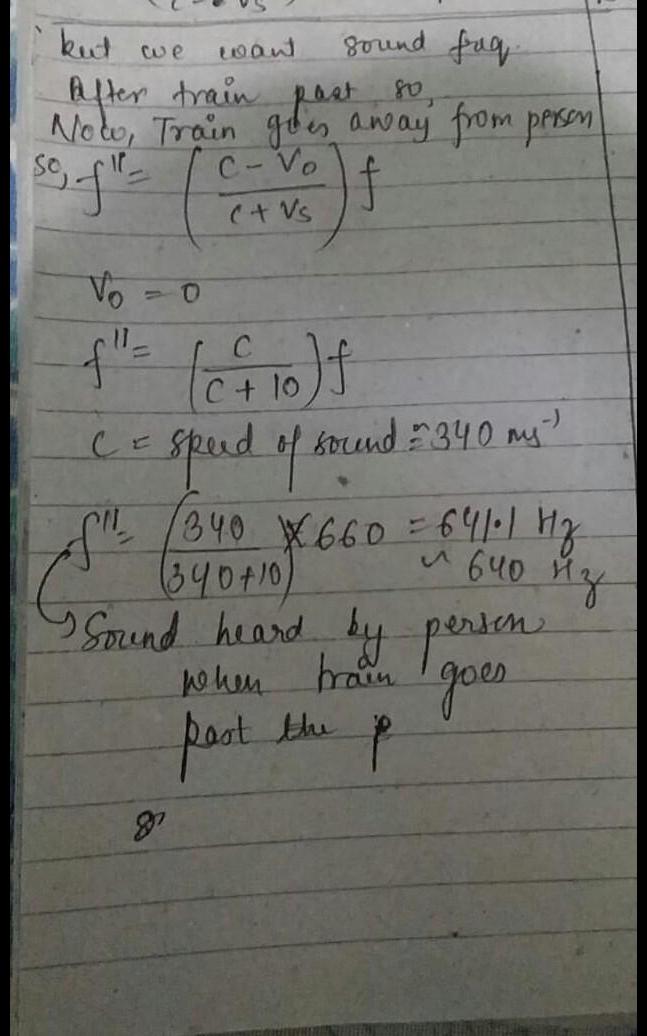 but we want sound freq.
After train past so,
Now, Train goes away from person
so, f'' = (C - V₀ / C + Vs) f
V₀ = 0
f'' = (C / C + 10) f
C = speed of sound ≈ 340 ms⁻¹
f'' = (340 / 340+10) × 660 = 641.1 Hz
~ 640 Hz
Sound heard by person
when train goes
past the p